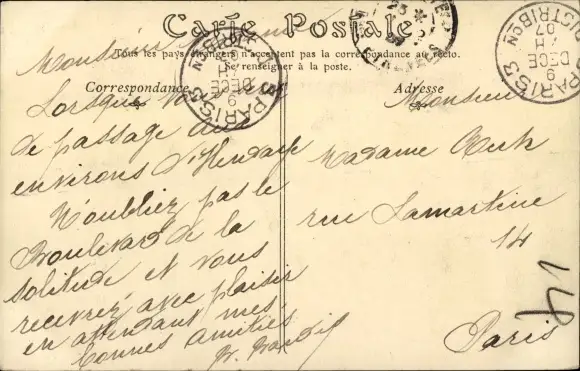 Carte Postale
Tous les pays étrangers n'acceptent pas la correspondance au recto.
Se renseigner à la poste.
Correspondance
Adresse
Monsieur
Lorsque vous
de passage aux
environs d'Hendaye
N'oubliez pas le
Boulevard de la
solitude et vous
recevrez avec plaisir
en attendant mes
bonnes amitiés
Monsieur
Madame
rue Lamartine
14
Paris
14
PARIS
9
DECE
07
DISTRIBON
PARIS 3
9
DECE